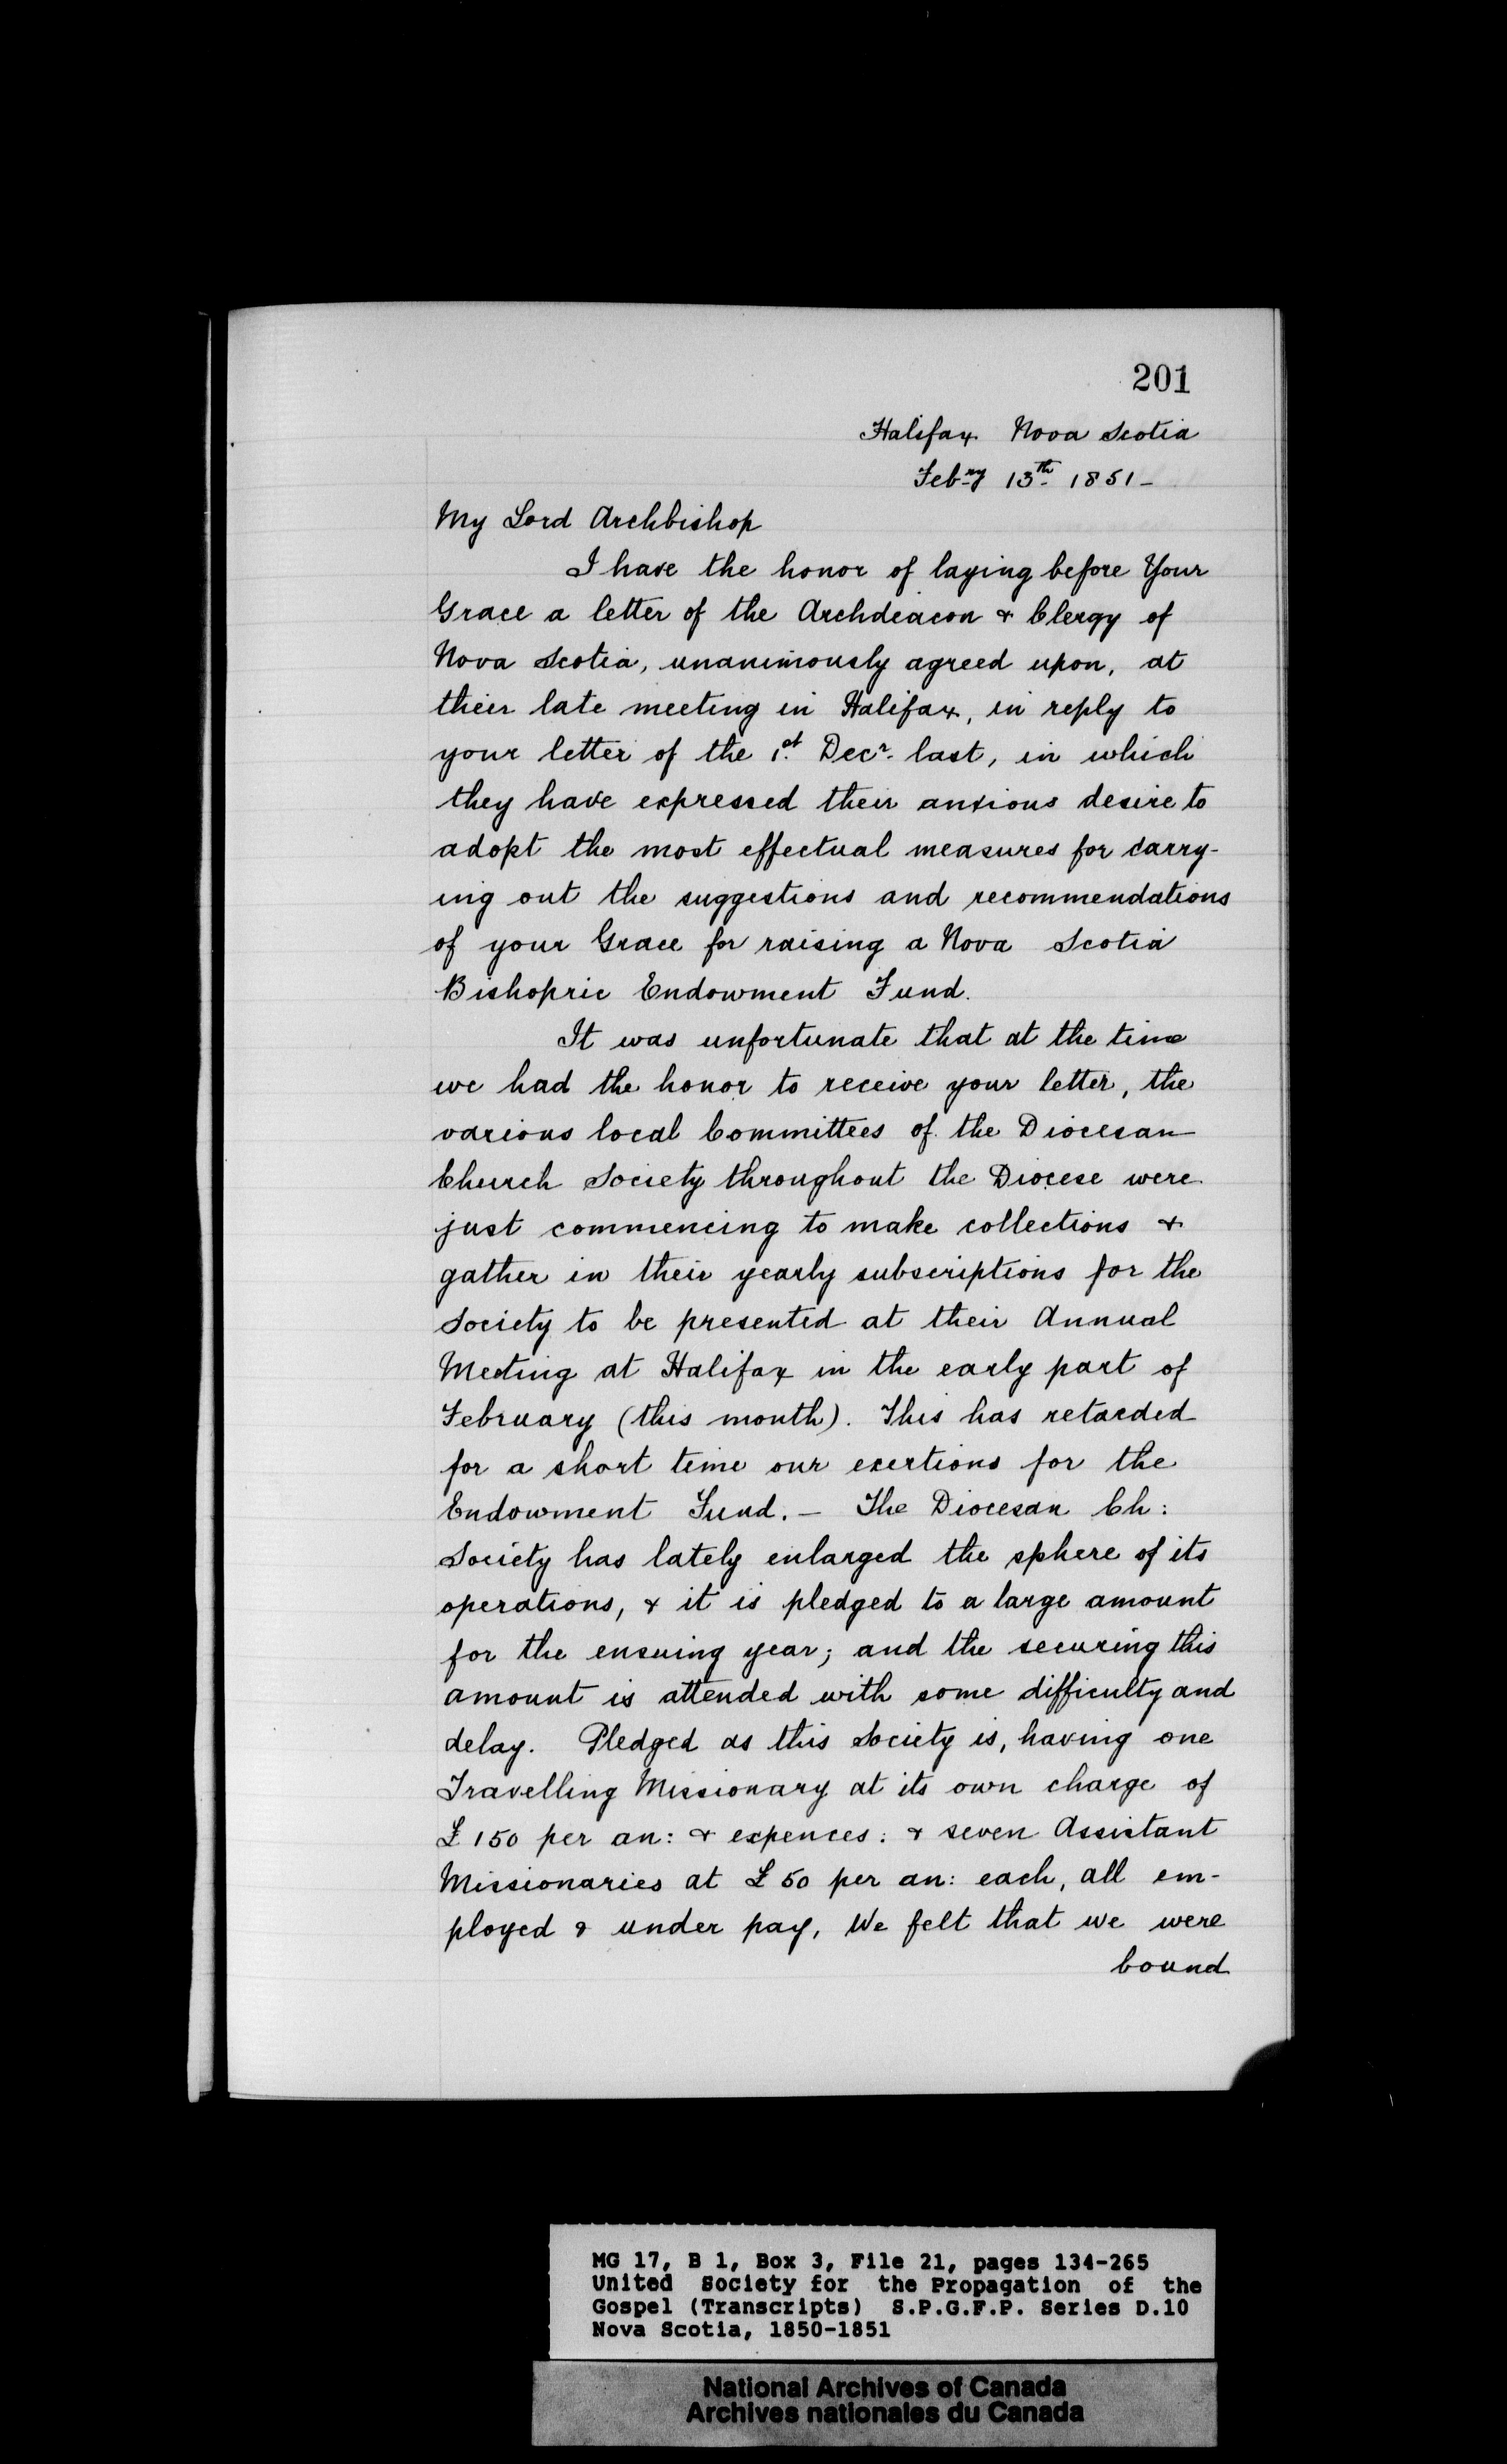 201
Halifax Nova Scotia
Feb.ry 13th 1851-
My Lord Archbishop
I have the honor of laying before Your
Grace a letter of the Archdeacon & Clergy of
Nova Scotia, unanimously agreed upon, at
their late meeting in Halifax, in reply to
your letter of the 1st Decr. last, in which
they have expressed their anxious desire to
adopt the most effectual measures for carry-
ing out the suggestions and recommendations
of your Grace for raising a Nova Scotia
Bishopric Endowment Fund.
It was unfortunate that at the time
we had the honor to receive your letter, the
various local Committees of the Diocesan
Church Society throughout the Diocese were
just commencing to make collections &
gather in their yearly subscriptions for the
Society to be presented at their Annual
Meeting at Halifax in the early part of
February (this month). This has retarded
for a short time our exertions for the
Endowment Fund. - The Diocesan Ch:
Society has lately enlarged the sphere of its
operations, & it is pledged to a large amount
for the ensuing year; and the securing this
amount is attended with some difficulty and
delay. Pledged as this Society is, having one
Travelling Missionary at its own charge of
£150 per an: & expences: & seven Assistant
Missionaries at £50 per an: each, all em-
ployed & under pay, We felt that we were
bound
MG 17, B 1, Box 3, File 21, pages 134-265
United Society for the Propagation of the
Gospel (Transcripts) S.P.G.F.P. Series D.10
Nova Scotia, 1850-1851
National Archives of Canada
Archives nationales du Canada